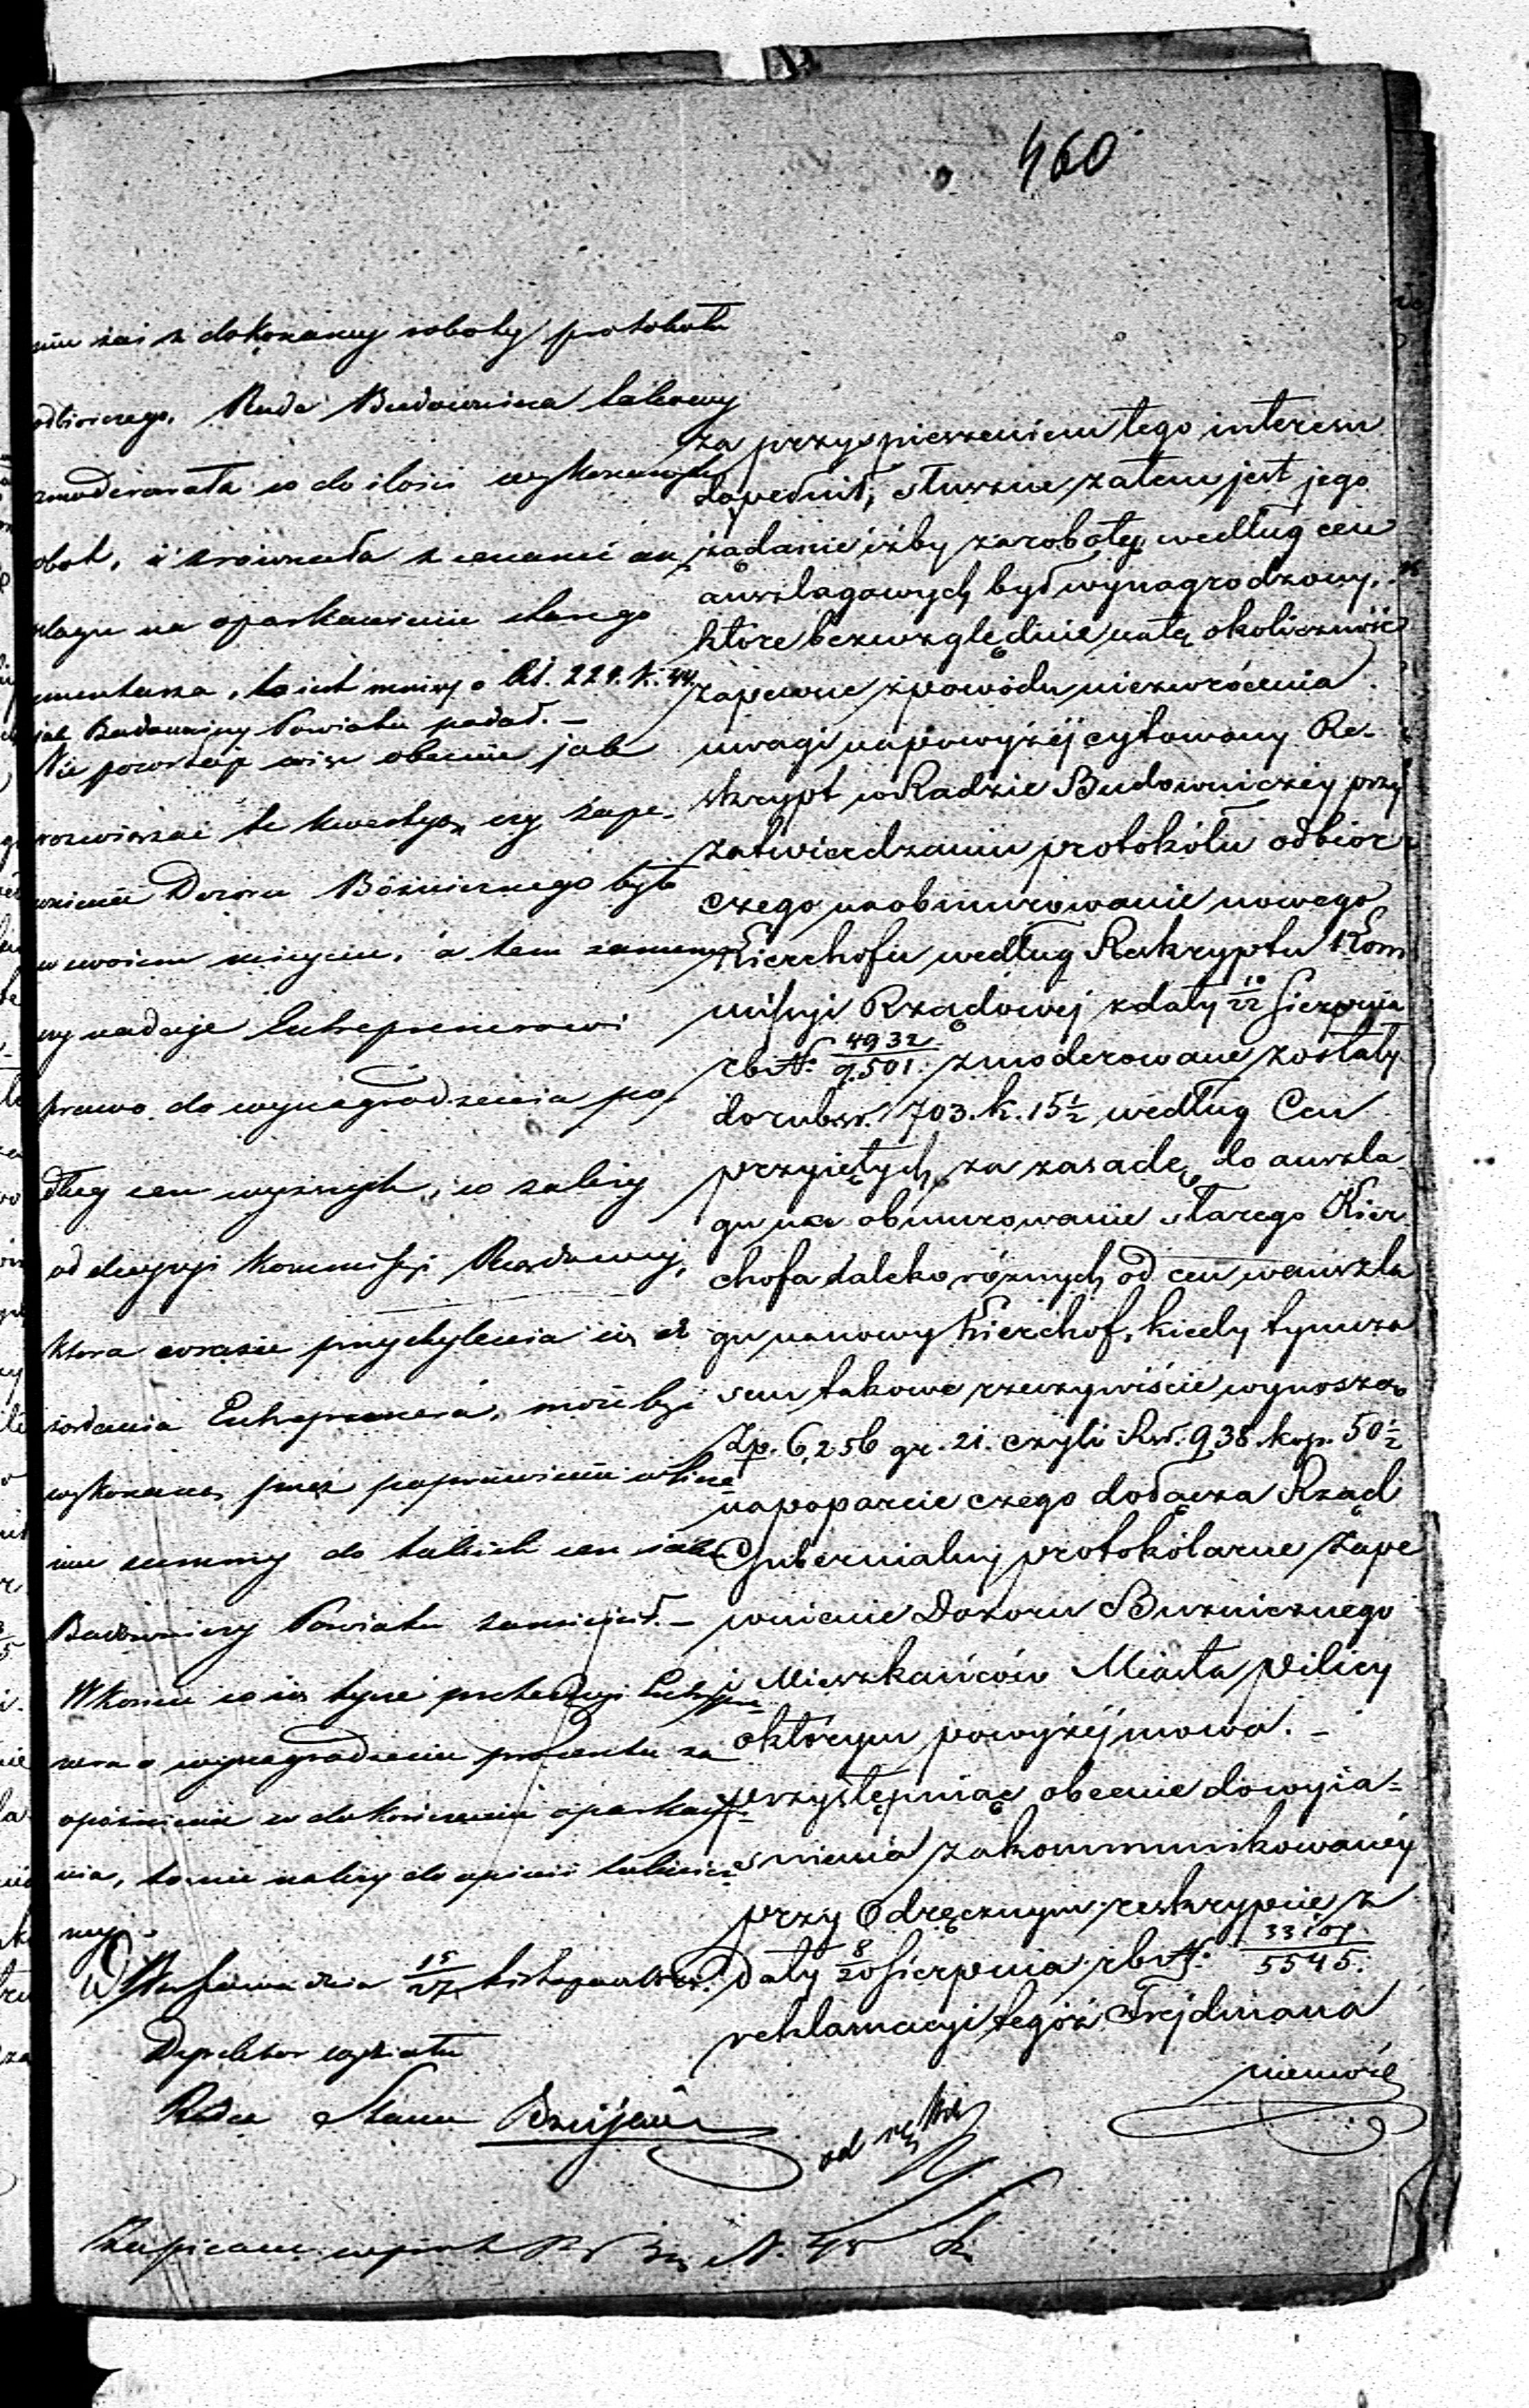 460
nie zaś z dokonanej roboty protokołu
odbiorczego, Rada Budownicza takowy
zmoderowała co do ilości wykonanych
robot, i zrównała z cenami an
szlagu na oparkanienie starego
cmentarza, to jest mniej o Rs. 229. k. 44
jak Budowniczy Powiatu podał. –
Nie pozostaje więc obecnie jak
rozwiązać te kwestyą czy zape-
wnienie Dozoru Bóżniczego było
w swoiem miejscu, a tem samem
czy nadaje Entreprenerowi
prawo do wynagrodzenia po
dług cen wyższych, co zależy
od decyzyi Kommissyi Rządowej,
która w razie przychylenia się do
żądania Entreprenera, może być
wykonana, przez poprawienie w
summy do takich cen jakie
Budowniczy Powiatu zamieścił. –
W końcu co się tyczy pretensyi Entrepre-
nera o wynagrodzenie procentu za
opóźnienie w dokończeniu oparkanie-
nia, to nie należy do opinii technicz-
nej.
W Warszawie dnia 15/27 Listopada
Dyrektor wydziału
Radca Stanu
od ręki
Zapisano w prot N. 45
za przyspieszeniem tego interesu
dopełnił, słuszne zatem jest jego
żądanie iżby za robotę według cen
anszlagowych był wynagrodzony,
które bezwzględnie na tę okoliczność
zapewne z powodu niezwrócenia
uwagi na powyżej cytowany Re-
skrypt w Radzie Budowniczej przy
zatwierdzeniu protokółu odbior-
czego na obmurowanie nowego
Kierchofu według Reskryptu Kom
missyi Rządowej z daty 10/22 Sierpnia
rb. N: 4932/9501. zmoderowane zostały
do rub. sr. 703. k. 15½ według Cen
przyjętych za zasadę do anszla-
gu na obmurowanie starego Kier
chofa daleko różnych od cen w anszla
gu na nowy Kierchof, kiedy tymcza
sem takowe rzeczywiście wynoszą
Zp. 6,256 gr. 21. czyli Rsr. 938. kop. 50½
na poparcie czego dołącza Rząd
Gubernialny protokólarne zape
wnienie Dozoru Buzniczego
i Mieszkańców Miasta Pilicy
o którym powyżej mowa. –
Przystępując obecnie do wyja-
snienia zakommunikowaney
przy Odręcznym reskrypcie z
daty 8/20 Sierpnia rb. N: 33107/5545.
reklamacyi tegóż Frejdmana
niemożę